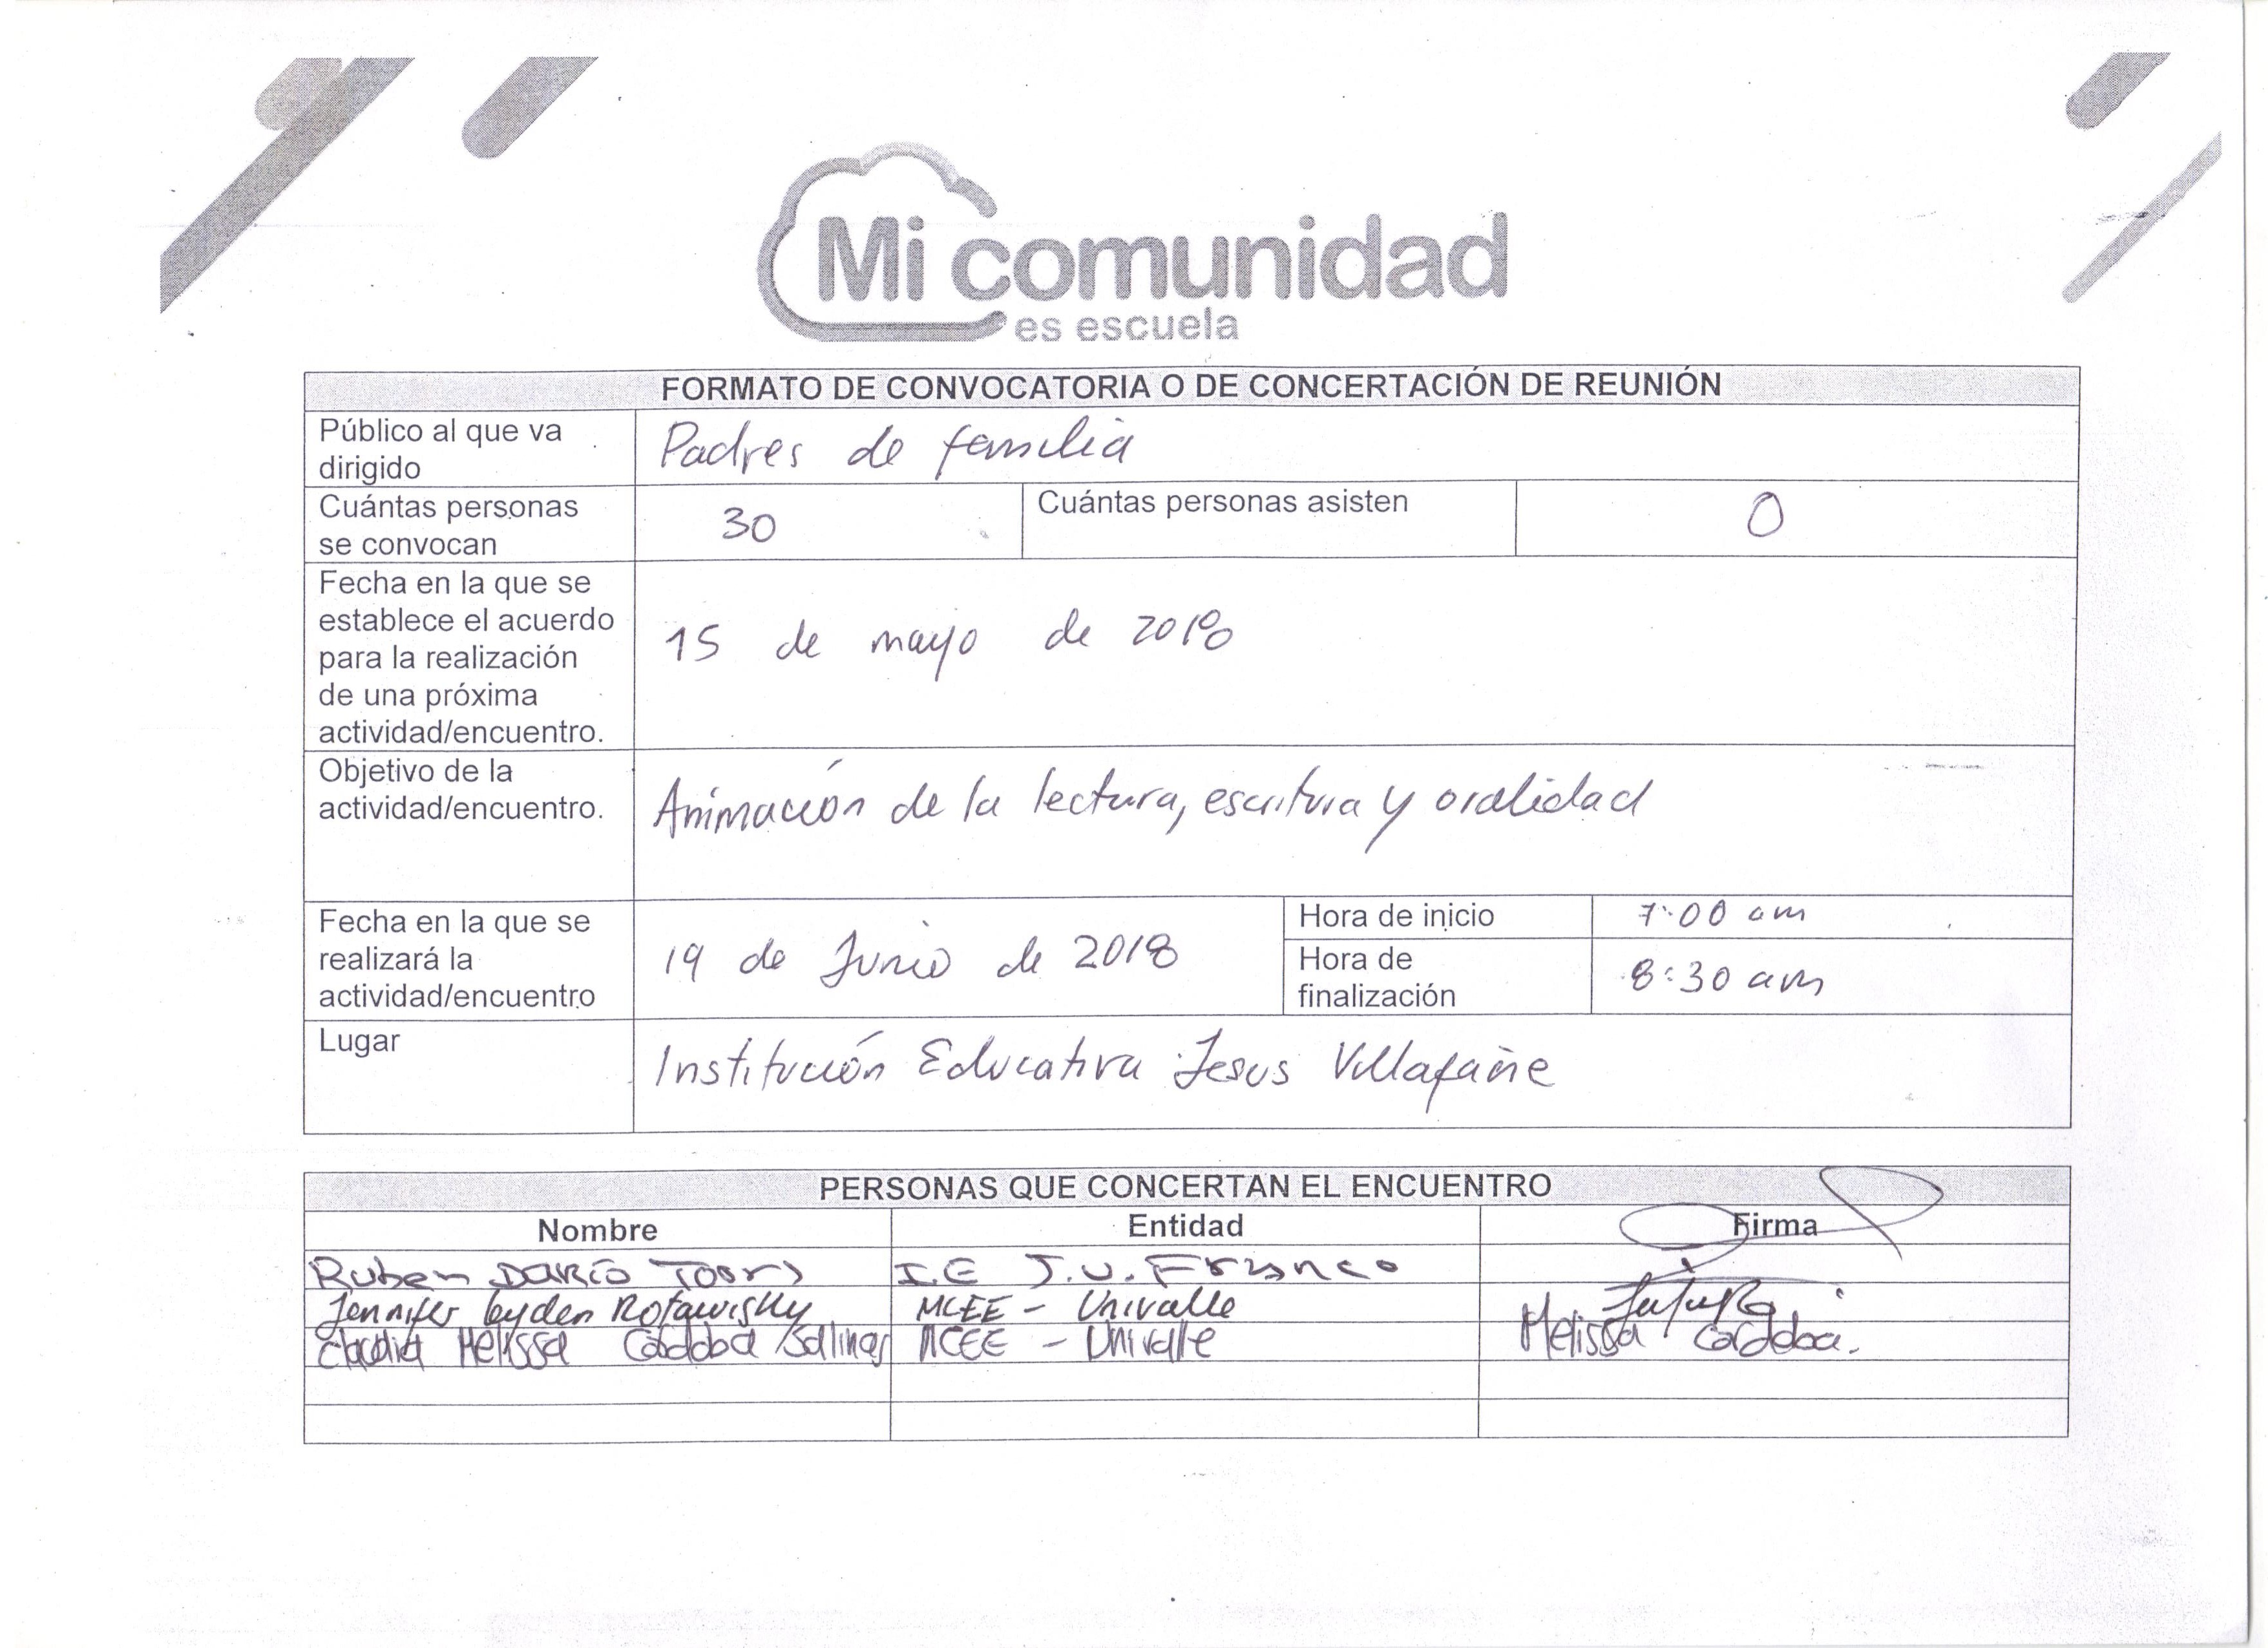 Mi comunidad
es escuela
FORMATO DE CONVOCATORIA O DE CONCERTACIÓN DE REUNIÓN
Público al que va
dirigido
Padres de familia
Cuántas personas
se convocan
30
Cuántas personas asisten
0
Fecha en la que se
establece el acuerdo
para la realización
de una próxima
actividad/encuentro.
15 de mayo de 2018
Objetivo de la
actividad/encuentro.
Animación de la lectura, escritura y oralidad
Fecha en la que se
realizará la
actividad/encuentro
19 de Junio de 2018
Hora de inicio
7:00 am
Hora de
finalización
8:30 am
Lugar
Institución Educativa Jesus Villafañe
PERSONAS QUE CONCERTAN EL ENCUENTRO
Nombre Entidad Firma
Ruben DARÍO I.E J.V. Franco
Jennifer leyden Rofawisky MCEE - Univalle
Claudia Melissa Córdoba Salinas MCEE - Univalle Melissa Córdoba.